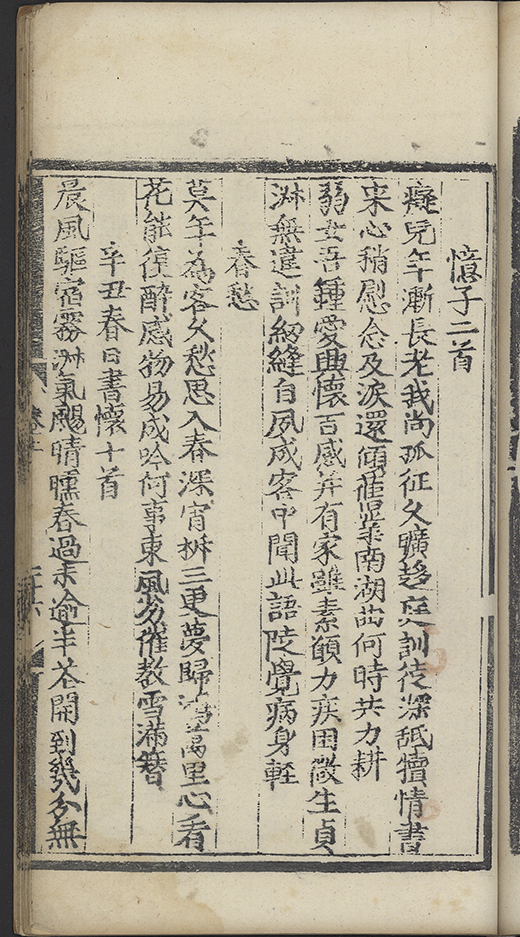 憶子二首
癡兒年漸長老我尚孤征久曠趍庭訓徒深舐犢情書
宋心稍慰念及淚還傾舊業南湖曲何時共力耕
弱女吾鍾愛興懷百感并有家雖素願力疾困微生貞
淋無違訓紉縫自夙成客中聞此語陡覺病身軽
春愁
莫年為客久愁思入春深宵柝三更夢歸鴻萬里心看
花能復醉感物易成吟何事東風劣催教雪滿簪
辛丑春日書懷十首
晨風驅宿霧淋氣颺晴曛春過未逾半花開到幾分無